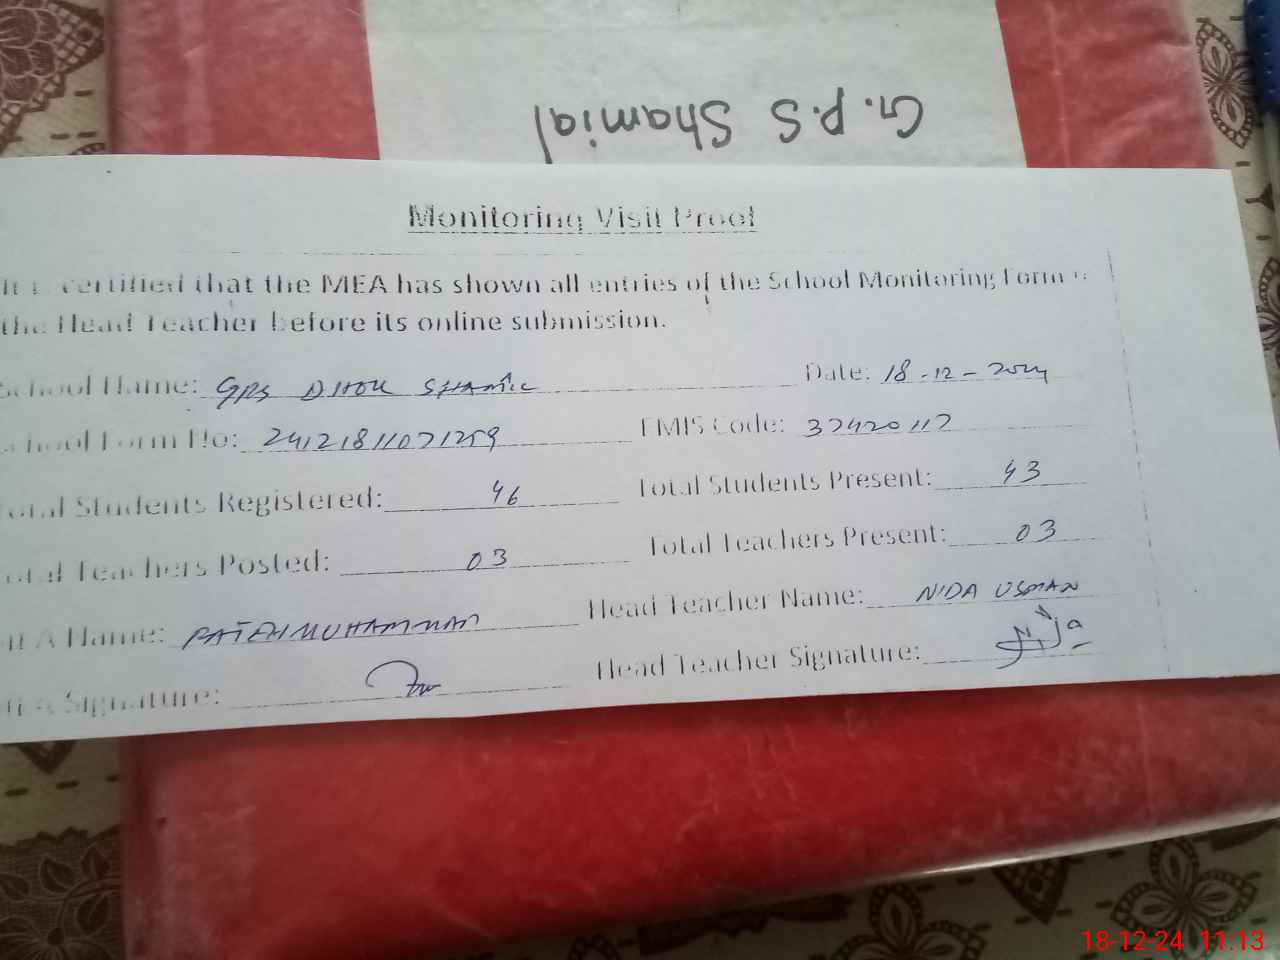 G.P.S Shamial
Monitoring Visit Proof
It is certified that the MEA has shown all entries of the School Monitoring Form to
the Head Teacher before its online submission.
School Name: GPS DHOK SHAMIL Date: 18-12-2024
School Form No: 24121811071259 EMIS Code: 37420117
Total Students Registered: 46 Total Students Present: 43
Total Teachers Posted: 03 Total Teachers Present: 03
MEA Name: FATEH MUHAMMAD Head Teacher Name: NIDA USMAN
MEA Signature: Head Teacher Signature: Nida
18-12-24 11:13